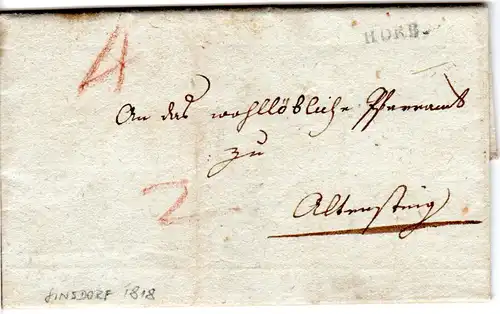 HORB.
4
An das wohllöbliche Pfarramt
zu
2
Altensteig
1818